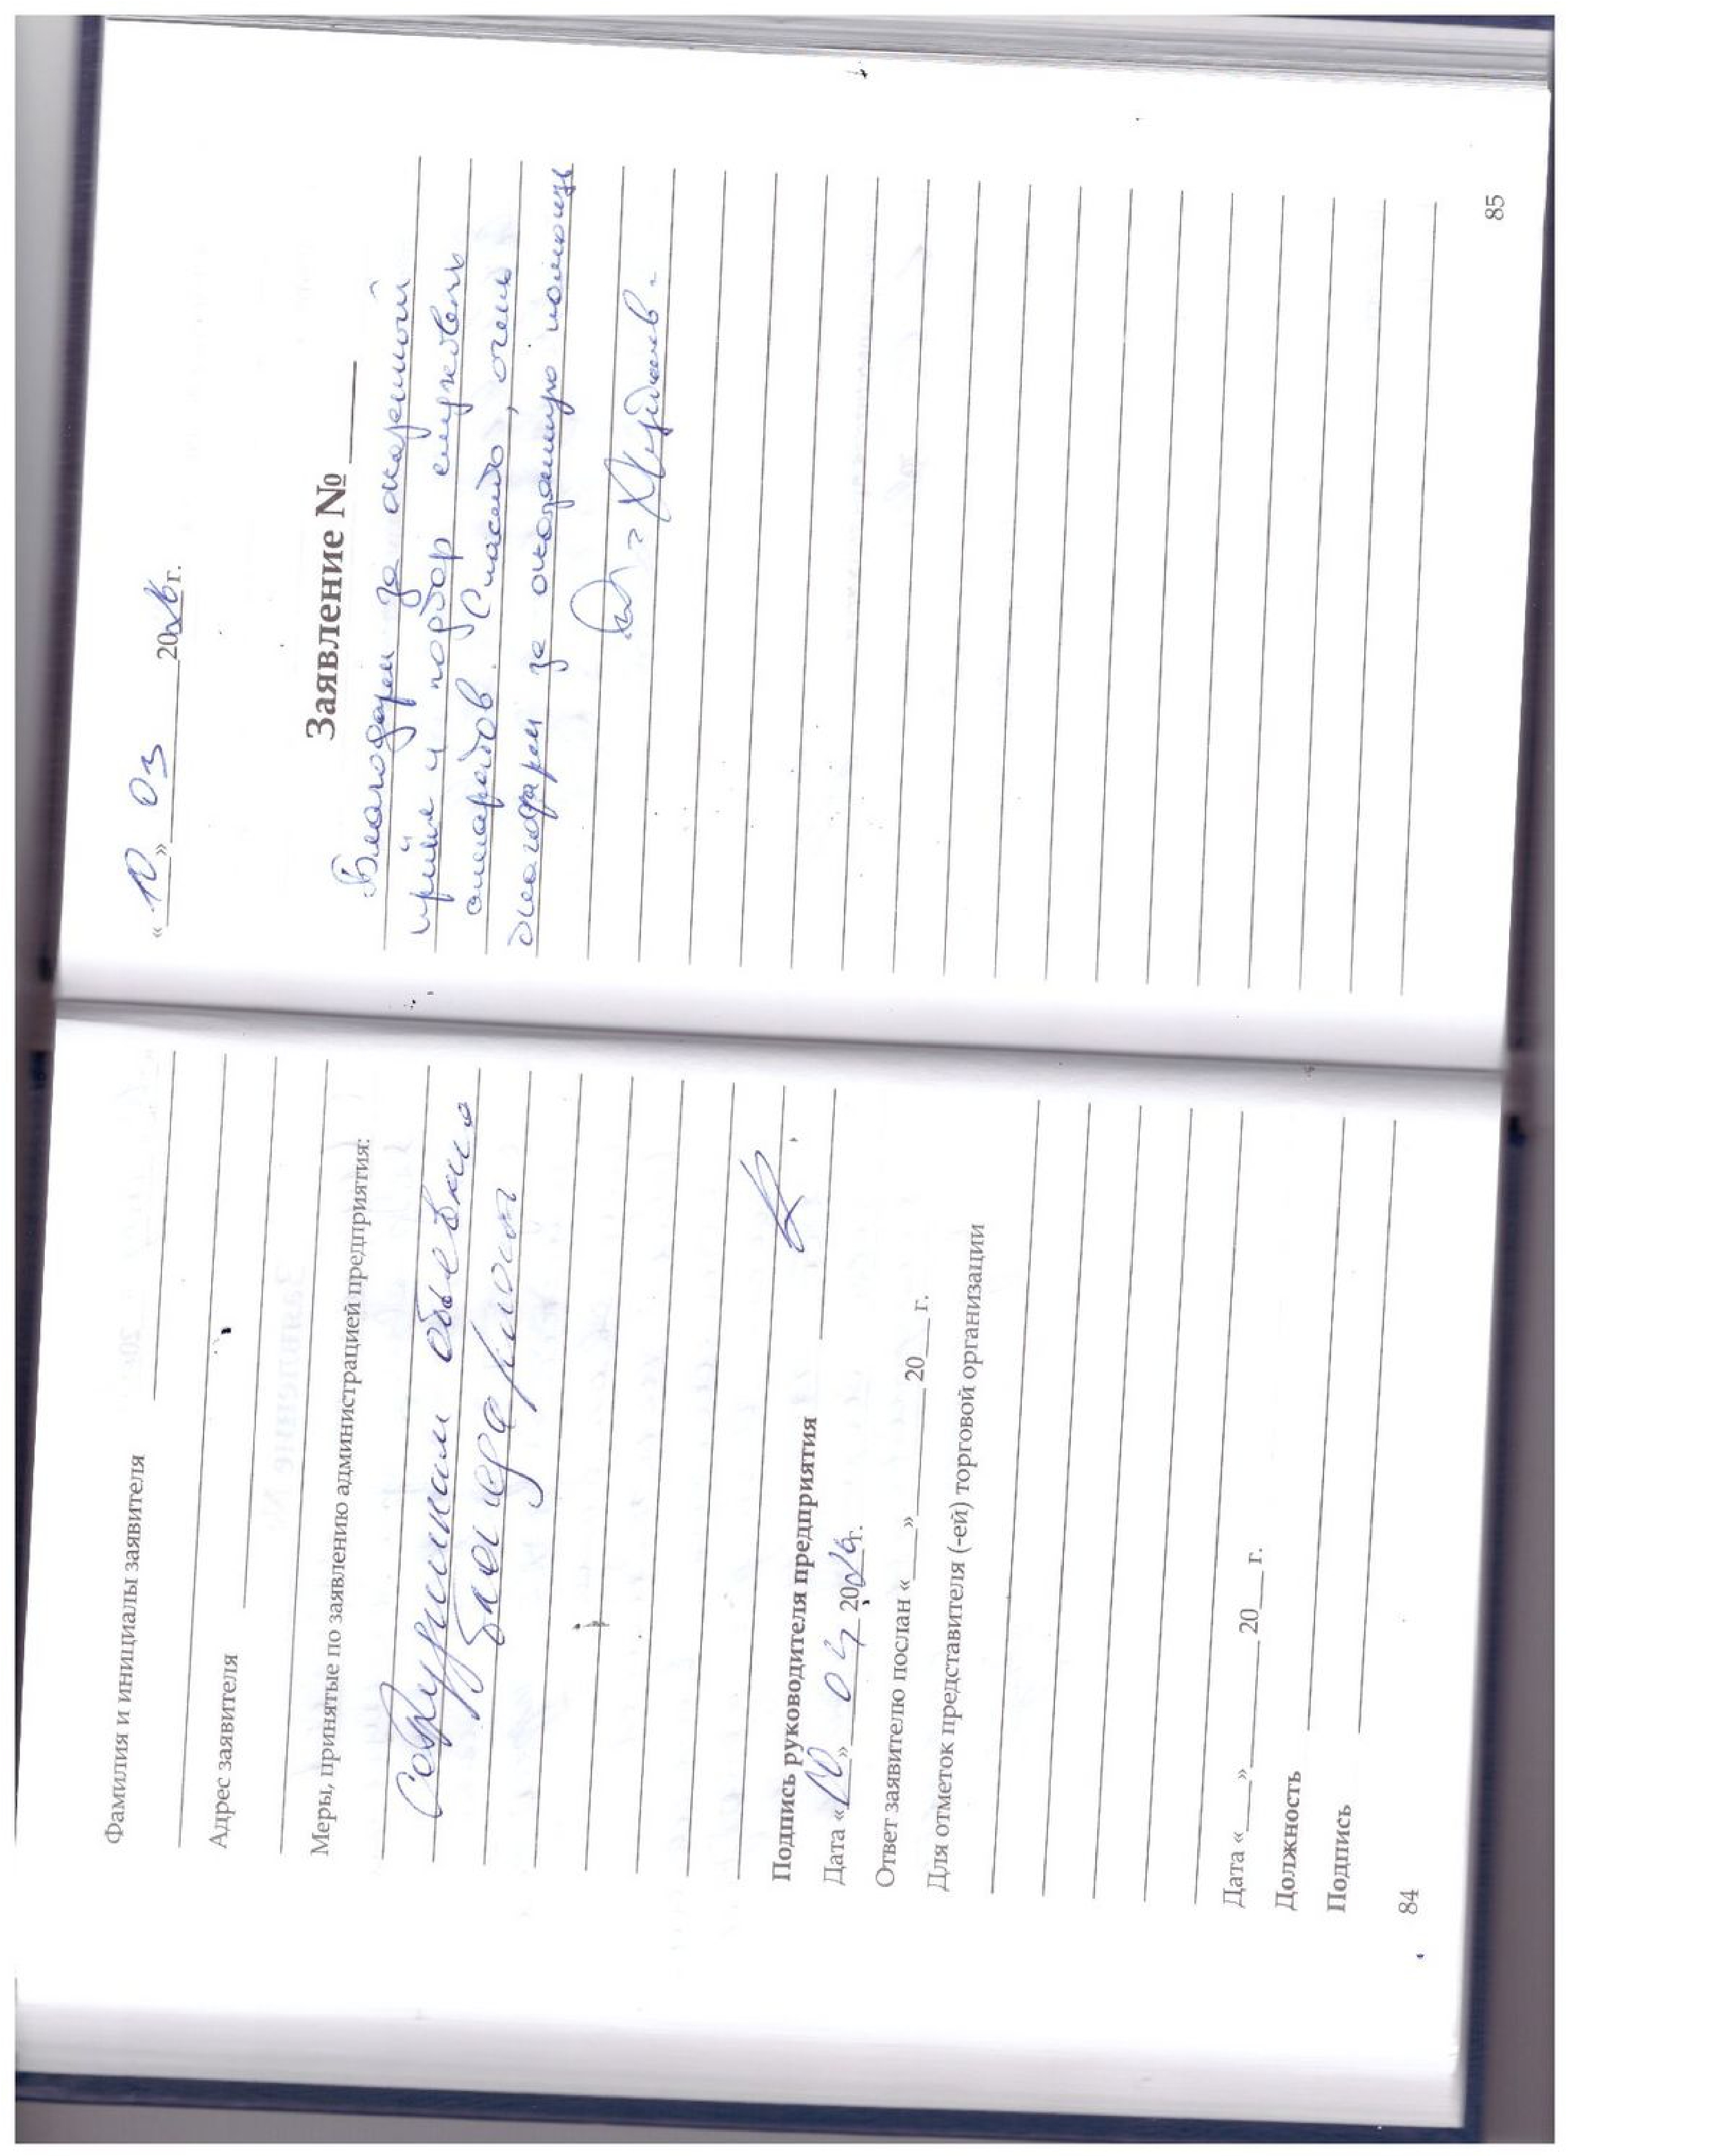 Фамилия и инициалы заявителя
Адрес заявителя
Меры, принятые по заявлению администрацией предприятия:
Сотрудникам объявлена
благодарность
Подпись руководителя предприятия
Дата «10» 03 2026г.
Ответ заявителю послан «___»________20___г.
Для отметок представителя (-ей) торговой организации
Дата «___»________20___г.
Должность
Подпись
84
«10» 03 2026г.
Заявление № ____
Благодарим за оказанный
приём и подбор слуховых
аппаратов. Спасибо, очень
благодарим за оказанную помощь
85